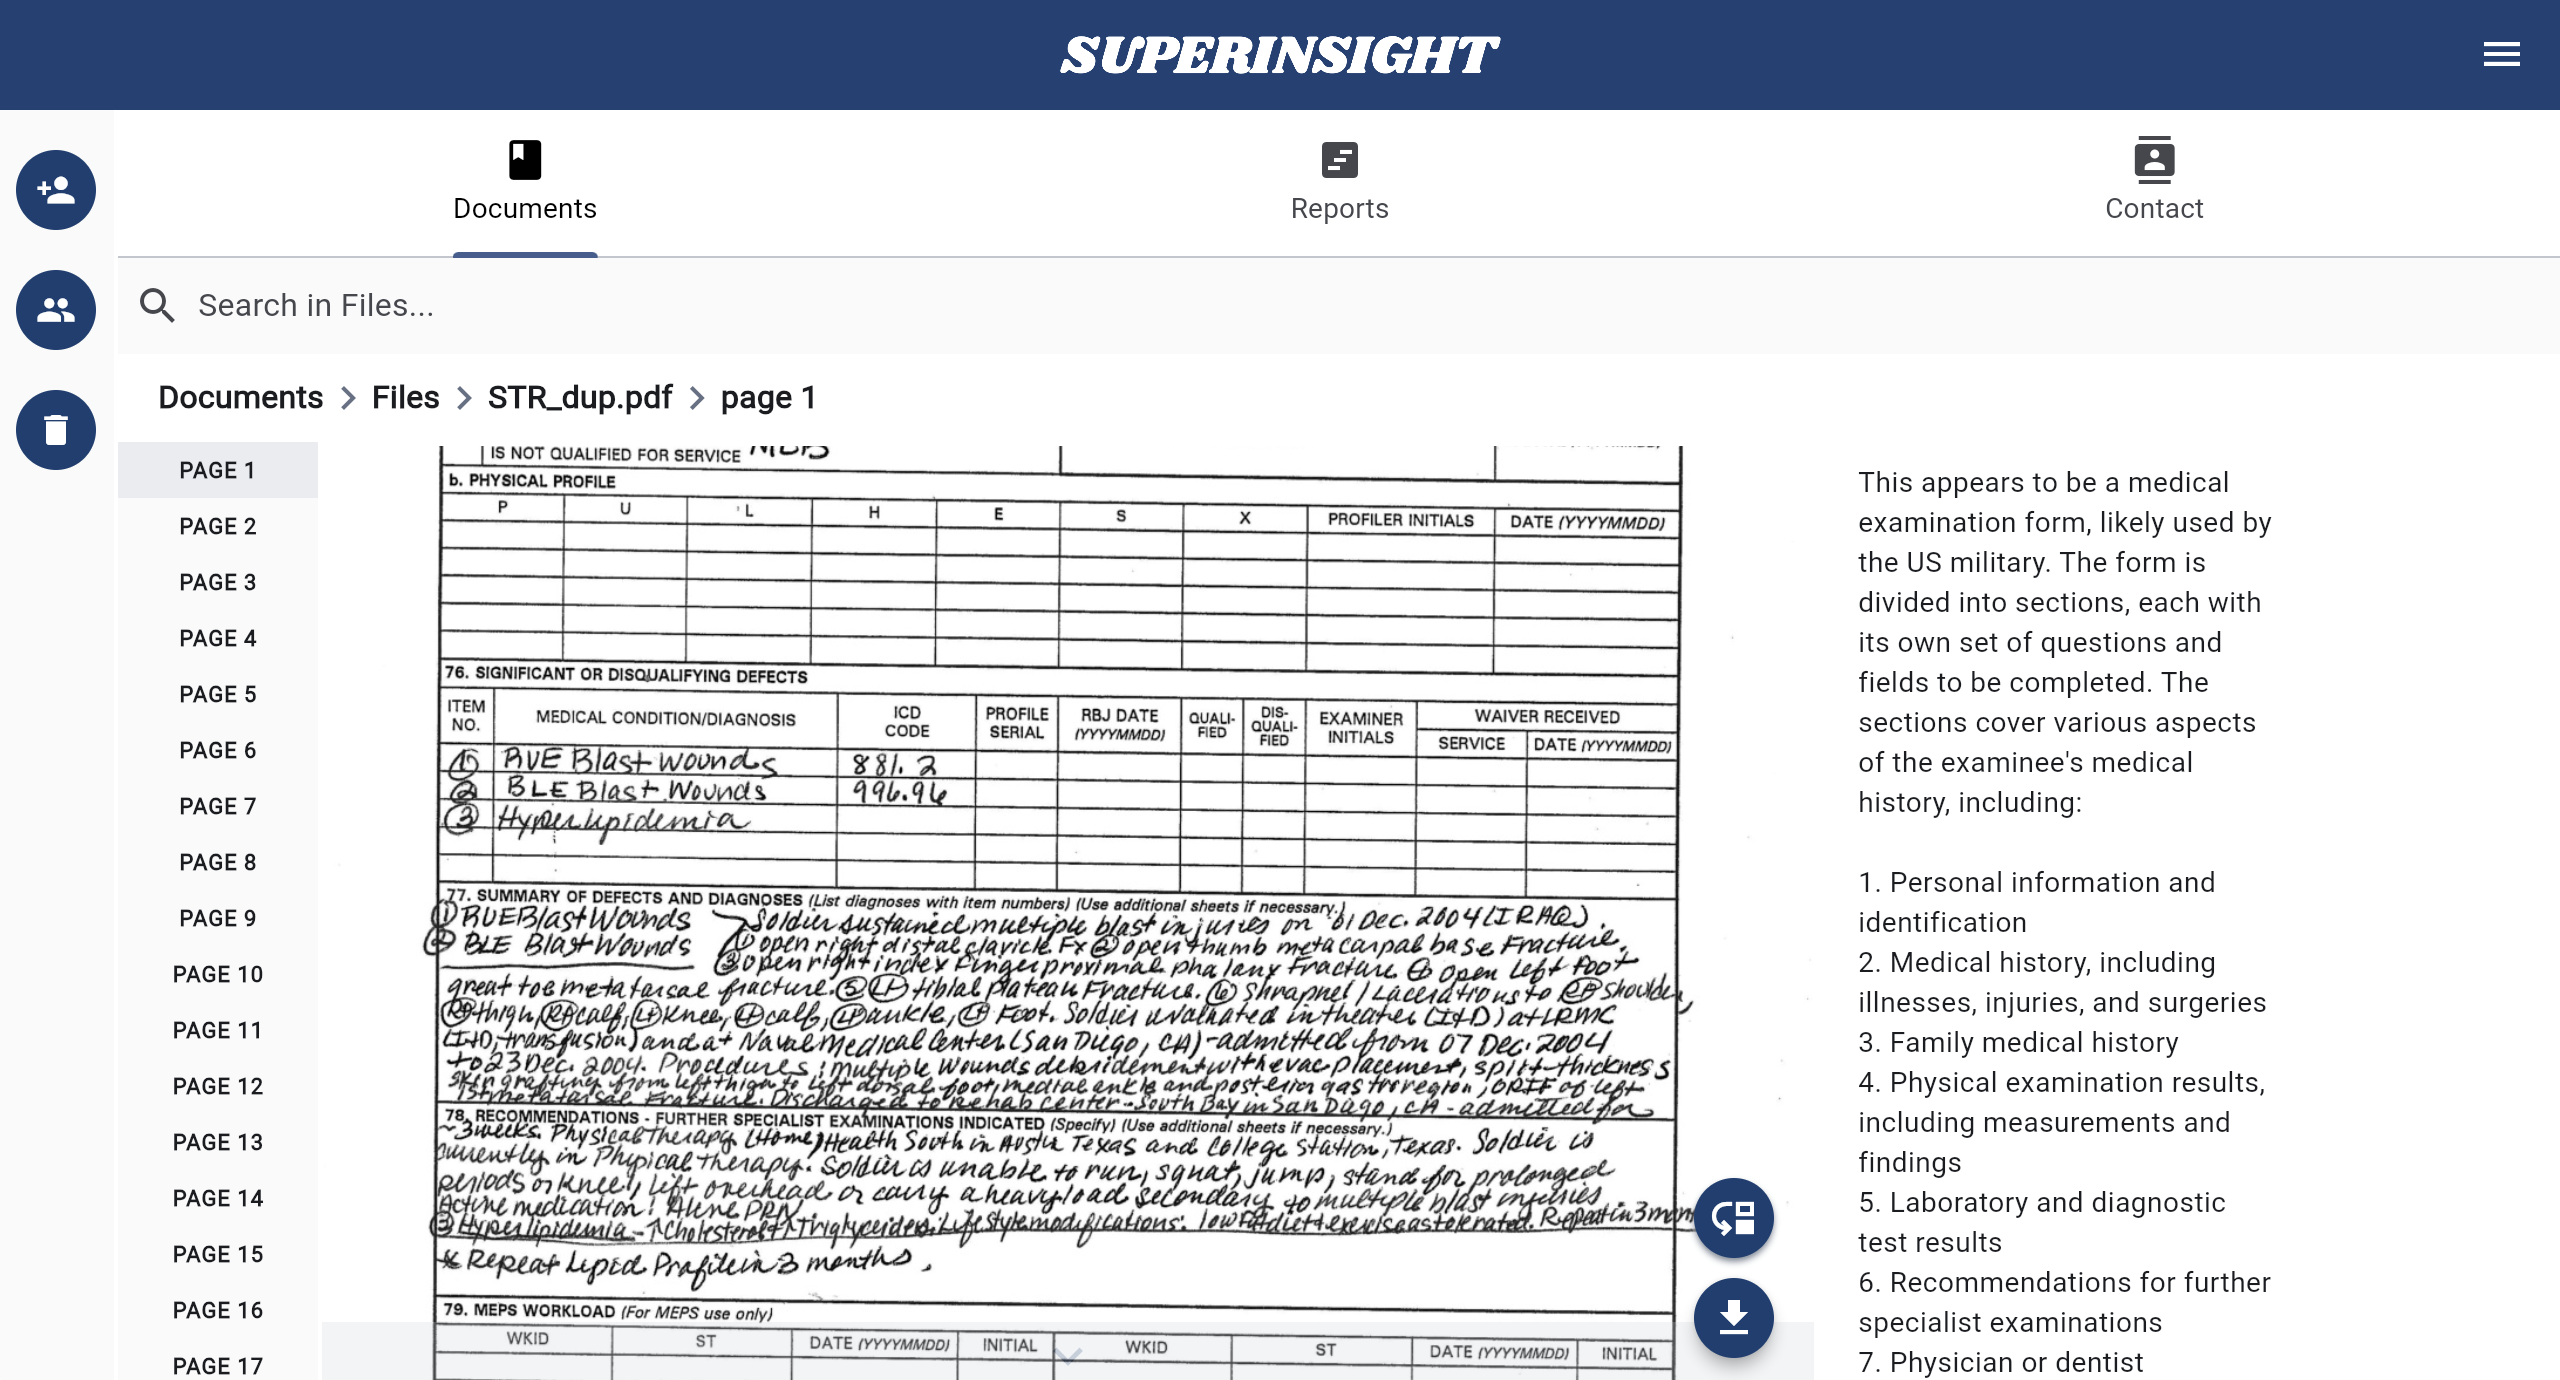 SUPERINSIGHT
Documents
Reports
Contact
Search in Files...
Documents > Files > STR_dup.pdf > page 1
PAGE 1
PAGE 2
PAGE 3
PAGE 4
PAGE 5
PAGE 6
PAGE 7
PAGE 8
PAGE 9
PAGE 10
PAGE 11
PAGE 12
PAGE 13
PAGE 14
PAGE 15
PAGE 16
PAGE 17
IS NOT QUALIFIED FOR SERVICE
b. PHYSICAL PROFILE
P U L H E S X PROFILER INITIALS DATE (YYYYMMDD)
76. SIGNIFICANT OR DISQUALIFYING DEFECTS
ITEM NO. MEDICAL CONDITION/DIAGNOSIS ICD CODE PROFILE SERIAL RBJ DATE (YYYYMMDD) QUALI-FIED DIS-QUALI-FIED EXAMINER INITIALS WAIVER RECEIVED
SERVICE DATE (YYYYMMDD)
① RUE Blast Wounds 881.2
② BLE Blast Wounds 996.96
③ Hyperlipidemia
77. SUMMARY OF DEFECTS AND DIAGNOSES (List diagnoses with item numbers) (Use additional sheets if necessary.)
① RUE Blast Wounds Soldier sustained multiple blast injuries on 01 Dec. 2004 (IRAQ).
② BLE Blast Wounds ① open right distal clavicle Fx ② open thumb metacarpal base Fracture,
③ open right index finger proximal phalanx Fracture ④ open left foot
great toe metatarsal fracture. ⑤ LT tibial plateau Fracture. ⑥ Shrapnel / Lacerations to RT shoulder,
RT thigh, RT calf, LT Knee, LT calf, LT ankle, LT Foot. Soldier evaluated in theater (I+D) at LRMC
(I+D, transfusion) and at Naval Medical Center (San Diego, CA) - admitted from 07 Dec. 2004
to 23 Dec. 2004. Procedures: multiple wounds debridement with vac placement, split-thickness
skin grafting from left thigh to left dorsal foot, medial ankle and posterior gastroc region, ORIF of left
1st metatarsal Fracture. Discharged to rehab center - South Bay in San Diego, CA - admitted for
78. RECOMMENDATIONS - FURTHER SPECIALIST EXAMINATIONS INDICATED (Specify) (Use additional sheets if necessary.)
~3 weeks. Physical therapy (Home) Health South in Austin Texas and College Station, Texas. Soldier is
currently in Physical therapy. Soldier is unable to run, squat, jump, stand for prolonged
periods or kneel, lift overhead or carry a heavy load secondary to multiple blast injuries.
Active medication: Aleve PRN
③ Hyperlipidemia - ↑Cholesterol + ↑Triglycerides: Lifestyle modifications: low fat diet + exercise as tolerated. Repeat in 3 mon
* Repeat Lipid Profile in 3 months.
79. MEPS WORKLOAD (For MEPS use only)
WKID ST DATE (YYYYMMDD) INITIAL WKID ST DATE (YYYYMMDD) INITIAL
This appears to be a medical
examination form, likely used by
the US military. The form is
divided into sections, each with
its own set of questions and
fields to be completed. The
sections cover various aspects
of the examinee's medical
history, including:
1. Personal information and
identification
2. Medical history, including
illnesses, injuries, and surgeries
3. Family medical history
4. Physical examination results,
including measurements and
findings
5. Laboratory and diagnostic
test results
6. Recommendations for further
specialist examinations
7. Physician or dentist